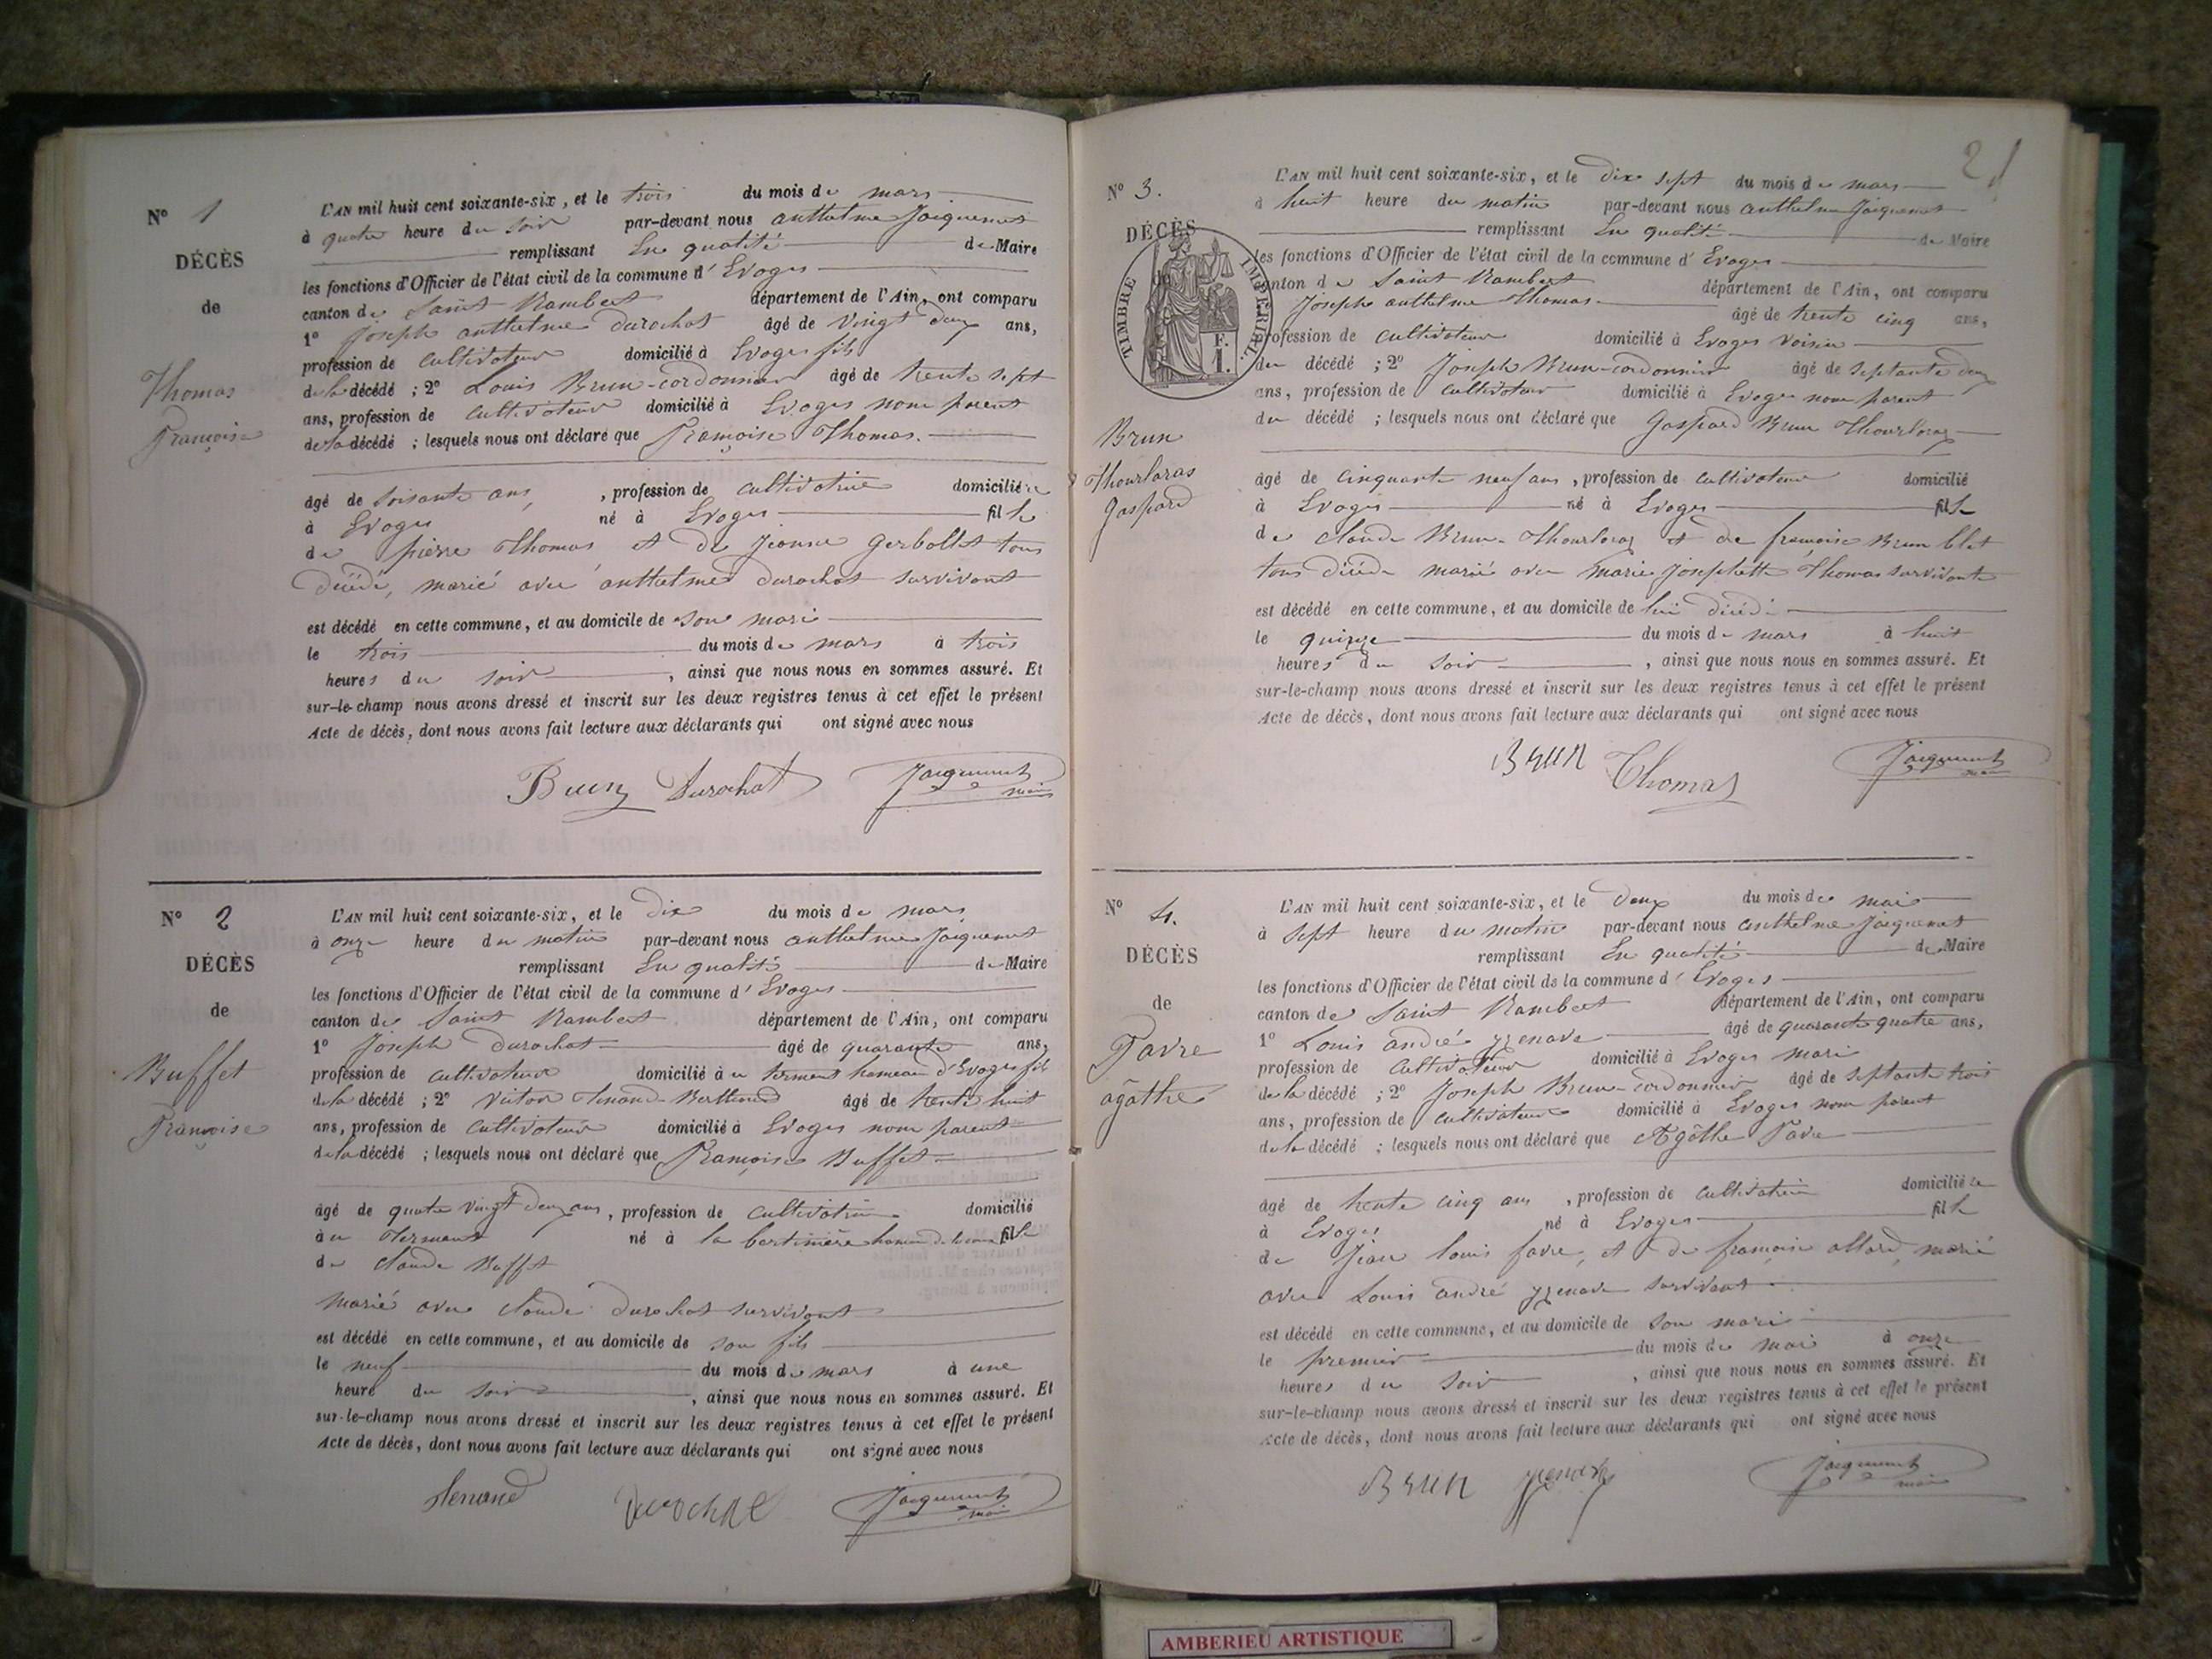 N° 1
DÉCÈS
de
Thomas
Françoise
L'AN mil huit cent soixante-six, et le trois du mois de mars
à quatre heure du soir par-devant nous anthelme Jacquemet
remplissant En qualité de Maire
les fonctions d'Officier de l'état civil de la commune d'Evoges
canton de Saint Rambert département de l'Ain, ont comparu
1° Joseph anthelme Durochat âgé de vingt deux ans,
profession de cultivateur domicilié à Evoges fils
de la décédé ; 2° Louis Brun-cordonnier âgé de trente sept
ans, profession de cultivateur domicilié à Evoges non parent
de la décédé ; lesquels nous ont déclaré que Françoise Thomas.
âgé de soisante ans, , profession de cultivatrice domiciliée
à Evoges né à Evoges fille
de pierre Thomas et de Jeanne Gerbollet tous
décédé, marié avec anthelme durochat survivant
est décédé en cette commune, et au domicile de son mari
le trois du mois de mars à trois
heures du soir , ainsi que nous nous en sommes assuré. Et
sur-le-champ nous avons dressé et inscrit sur les deux registres tenus à cet effet le présent
Acte de décès, dont nous avons fait lecture aux déclarants qui ont signé avec nous
Brun Durochat Jacquemet maire
N° 2
DÉCÈS
de
Buffet
Françoise
L'AN mil huit cent soixante-six, et le dix du mois de mars
à onze heure du matin par-devant nous anthelme Jacquemet
remplissant En qualité de Maire
les fonctions d'Officier de l'état civil de la commune d'Evoges
canton de Saint Rambert département de l'Ain, ont comparu
1° Joseph durochat âgé de quarante ans,
profession de cultivateur domicilié à hameau d'Evoges fils
de la décédé ; 2° victor âgé de trente huit
ans, profession de cultivateur domicilié à Evoges non parent
de la décédé ; lesquels nous ont déclaré que Françoise Buffet
âgé de quatre vingt deux ans, profession de cultivatrice domicilié
à né à la hameau fille
de claude Buffet
marié avec claude durochat survivant
est décédé en cette commune, et au domicile de son fils
le neuf du mois de mars à une
heure du soir , ainsi que nous nous en sommes assuré. Et
sur-le-champ nous avons dressé et inscrit sur les deux registres tenus à cet effet le présent
Acte de décès, dont nous avons fait lecture aux déclarants qui ont signé avec nous
durochat Jacquemet maire
21
N° 3.
DÉCÈS
TIMBRE IMPÉRIAL.
1 F.
Brun
Thourlaras
Gaspard
L'AN mil huit cent soixante-six, et le dix sept du mois de mars
à huit heure du matin par-devant nous anthelme Jacquemet
remplissant En qualité de Maire
les fonctions d'Officier de l'état civil de la commune d'Evoges
canton de Saint Rambert département de l'Ain, ont comparu
Joseph anthelme Thomas âgé de trente cinq ans,
profession de cultivateur domicilié à Evoges voisin
du décédé ; 2° Joseph Brun-cordonnier âgé de septante deux
ans, profession de cultivateur domicilié à Evoges non parent
du décédé ; lesquels nous ont déclaré que Gaspard Brun Thourlaras
âgé de cinquante neuf ans, profession de cultivateur domicilié
à Evoges né à Evoges fils
de claude Brun-Thourlaras et de françoise Brun blet
tous décédé marié avec marie josephette Thomas survivante
est décédé en cette commune, et au domicile de lui décédé
le quinze du mois de mars à huit
heures du soir , ainsi que nous nous en sommes assuré. Et
sur-le-champ nous avons dressé et inscrit sur les deux registres tenus à cet effet le présent
Acte de décès, dont nous avons fait lecture aux déclarants qui ont signé avec nous
BRUN Thomas Jacquemet maire
N° 4.
DÉCÈS
de
Favre
âgathe
L'AN mil huit cent soixante-six, et le deux du mois de mai
à sept heure du matin par-devant nous anthelme Jacquemet
remplissant En qualité de Maire
les fonctions d'Officier de l'état civil de la commune d'Evoges
canton de Saint Rambert département de l'Ain, ont comparu
1° Louis andré yzenave âgé de quarante quatre ans,
profession de cultivateur domicilié à Evoges mari
de la décédé ; 2° Joseph Brun-cordonnier âgé de septante trois
ans, profession de cultivateur domicilié à Evoges non parent
de la décédé ; lesquels nous ont déclaré que Agâthe Favre
âgé de trente cinq ans , profession de cultivatrice domiciliée
à Evoges né à Evoges fille
de Jean louis favre, et de françoise allard, marié
avec Louis andré yzenave survivant
est décédé en cette commune, et au domicile de son mari
le premier du mois de mai à onze
heures du soir , ainsi que nous nous en sommes assuré. Et
sur-le-champ nous avons dressé et inscrit sur les deux registres tenus à cet effet le présent
Acte de décès, dont nous avons fait lecture aux déclarants qui ont signé avec nous
BRUN yzenave Jacquemet maire
AMBERIEU ARTISTIQUE